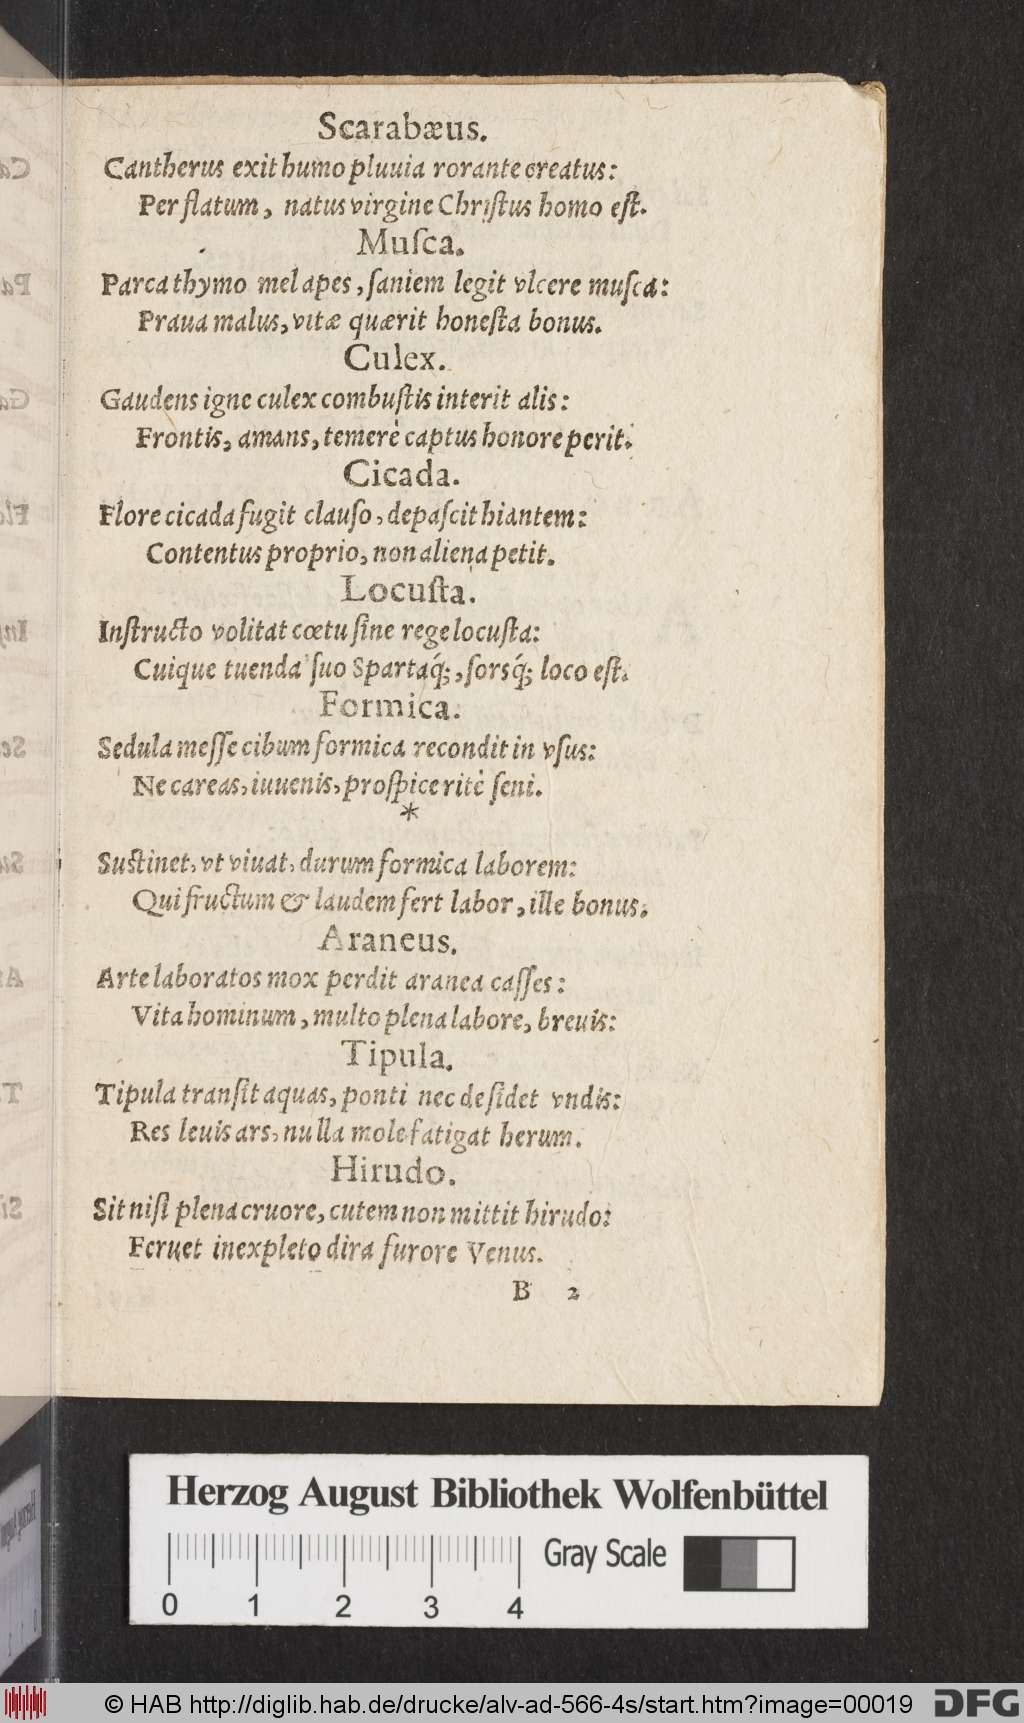 Scarabæus.
Cantherus exit humo pluuia rorante creatus:
Per flatum, natus virgine Chriſtus homo eſt.
Muſca.
Parca thymo mel apes, ſaniem legit vlcere muſca:
Praua malus, vitæ quærit honeſta bonus.
Culex.
Gaudens igne culex combuſtis interit alis:
Frontis, amans, temerè captus honore perit.
Cicada.
Flore cicada fugit clauſo, depaſcit hiantem:
Contentus proprio, non aliena petit.
Locuſta.
Inſtructo volitat cœtu ſine rege locuſta:
Cuique tuenda ſuo Spartaq́;, ſorsq́; loco eſt.
Formica.
Sedula meſſe cibum formica recondit in vſus:
Ne careas, iuuenis, proſpice ritè ſeni.
*
Suſtinet, vt viuat, durum formica laborem:
Qui fructum & laudem fert labor, ille bonus.
Araneus.
Arte laboratos mox perdit aranea caſſes:
Vita hominum, multo plena labore, breuis:
Tipula.
Tipula tranſit aquas, ponti nec deſidet vndis:
Res leuis ars, nulla mole fatigat herum.
Hirudo.
Sit niſi plena cruore, cutem non mittit hirudo:
Feruet inexpleto dira furore Venus.
B 2
Herzog August Bibliothek Wolfenbüttel
Gray Scale
0 1 2 3 4
© HAB http://diglib.hab.de/drucke/alv-ad-566-4s/start.htm?image=00019
DFG